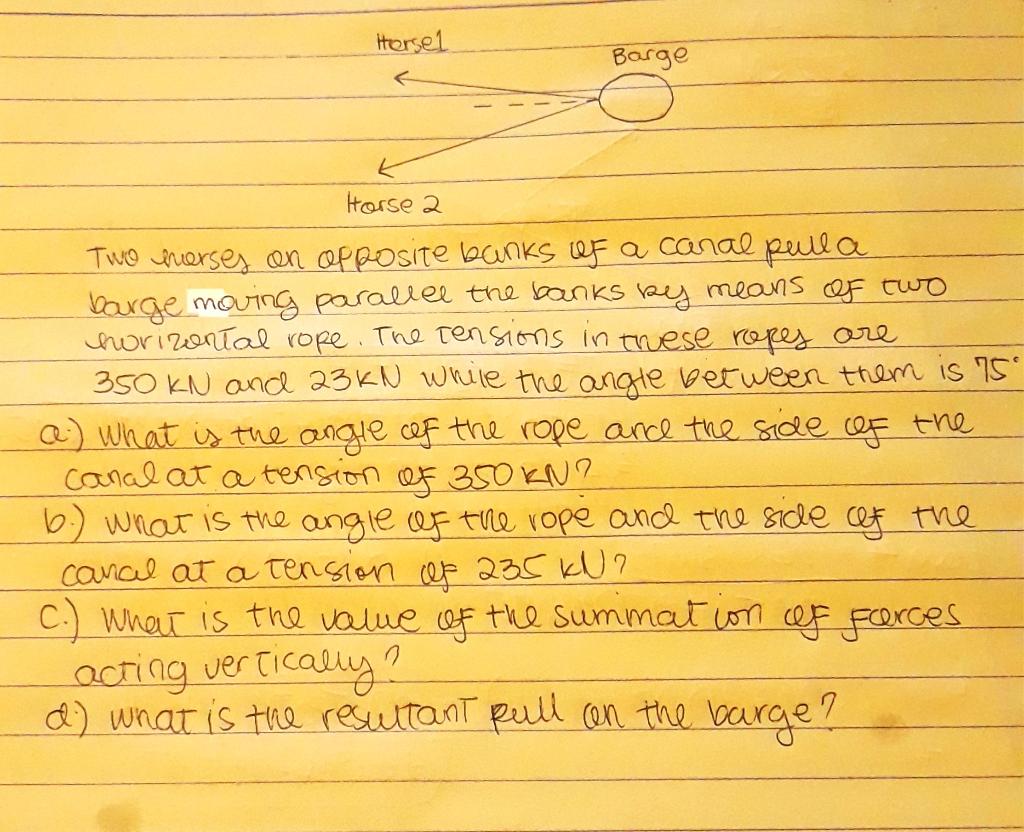 Horse1
Barge
Horse 2
Two horses on opposite banks of a canal pull a
barge moving parallel the banks by means of two
horizontal rope. The tensions in these ropes are
350 KN and 23KN while the angle between them is 75°
a.) What is the angle of the rope and the side of the
canal at a tension of 350 KN?
b.) What is the angle of the rope and the side of the
canal at a tension of 235 kN?
C.) What is the value of the summation of Forces
acting vertically?
d.) What is the resultant pull on the barge?